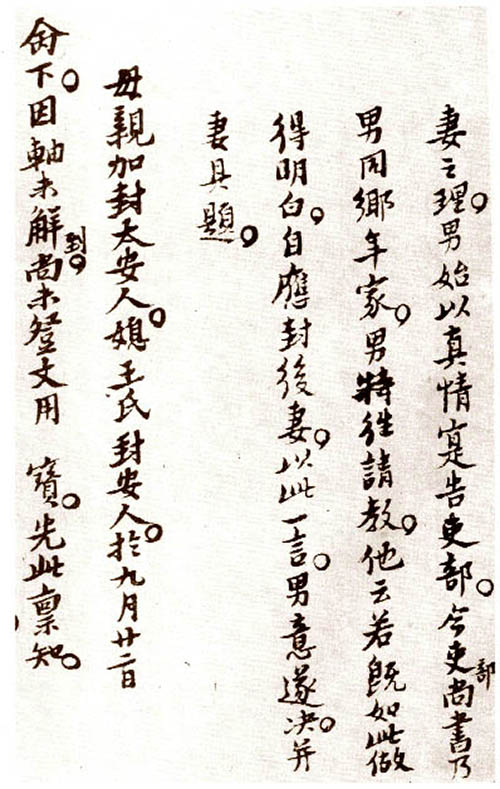 妻之理。男始以真情寔告吏部。今吏部尚書乃
男同鄉年家。男特往請教。他云若既如此做
得明白。自應封後妻。以此一言。男意遂决。并
妻具題。
母親加封太安人。媳王氏封安人。於九月廿二日
命下。因軸未解到。尚未登文用 寶。先此禀知。